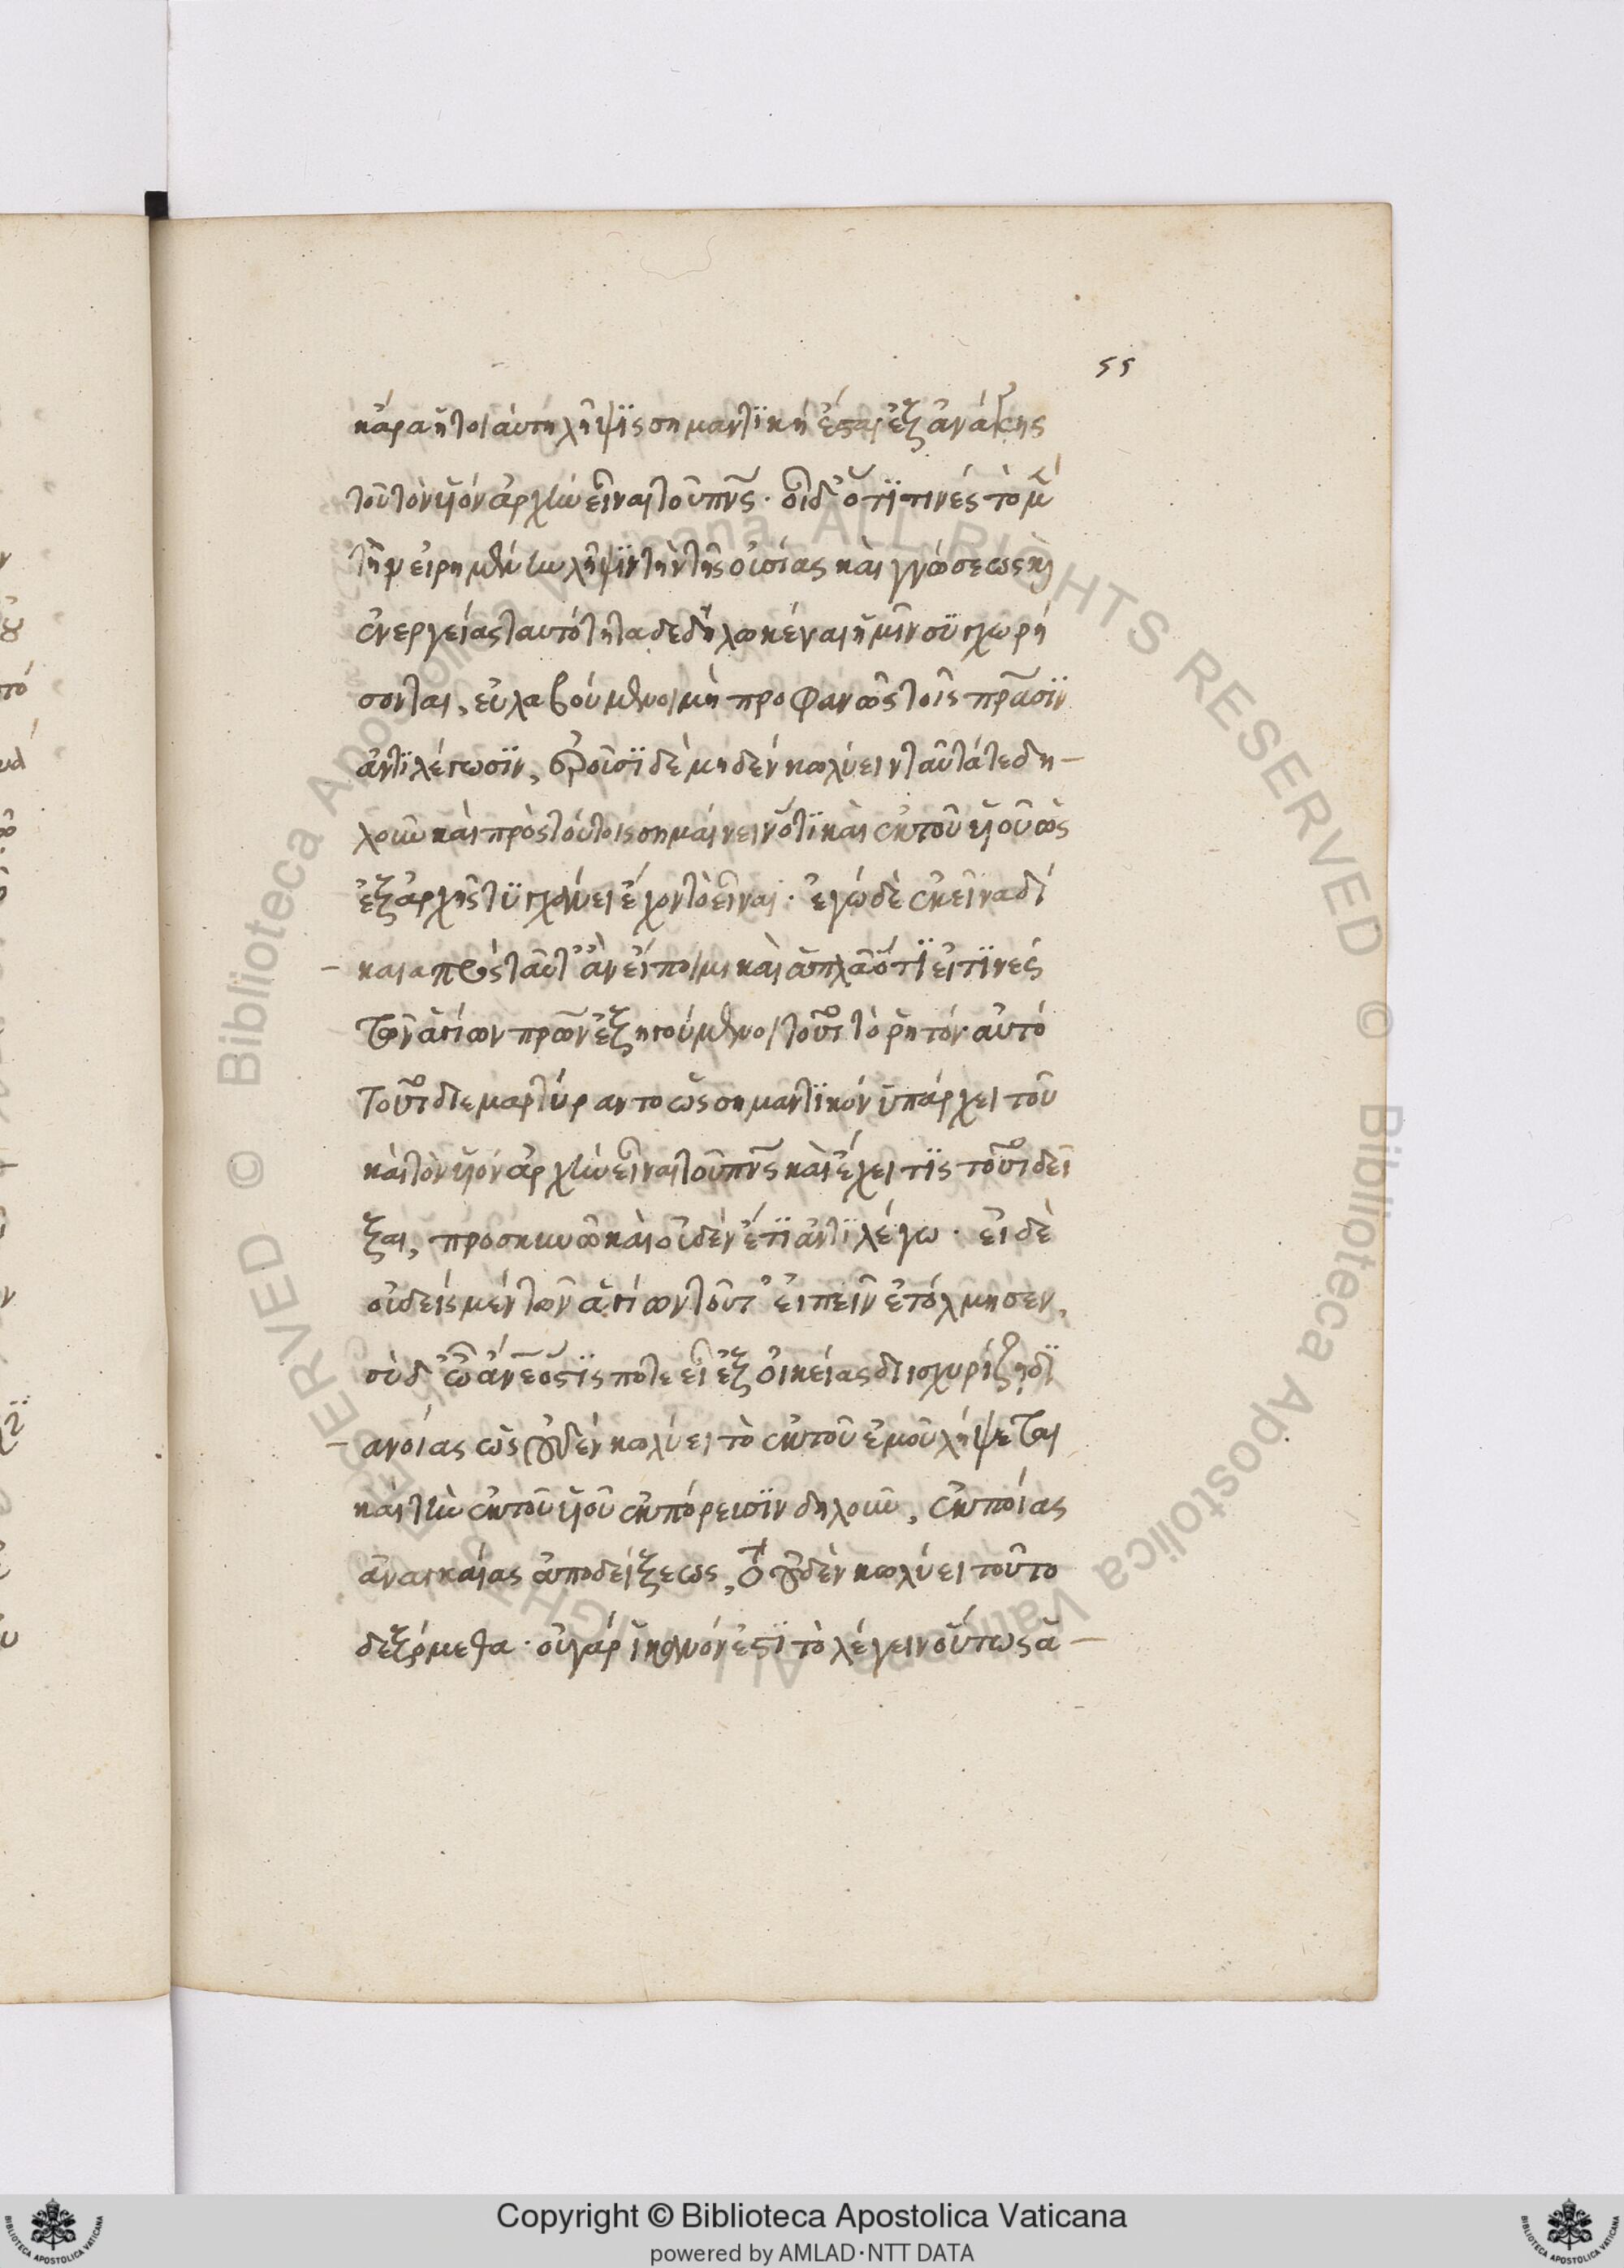 55
κἄρα ἥ τοιαύτη λῆψϊς σημαντϊκὴ ἔσται ἐξ ἀνάγκης
τοῦ τὸν υἱὸν ἀρχὴν εἶναι τοῦ πνς. οἶδ' ὅτϊ τινὲς τὸ μὲν
τὴν εἰρημένην λῆψϊν τὴν τῆς οὐσίας καὶ γνώσεως καὶ
ἐνεργείας ταυτότητα δεδηλωκέναι ἡμῖν συγχωρή
σονται, εὐλαβούμενοι μὴ προφανῶς τοῖς πρασϊν
ἀντϊλέγωσϊν, ἐροῦσϊ δὲ μηδὲν κωλύειν ταῦτά τε δη–
λοῦν καὶ πρὸς τούτοις σημαίνειν ὅτϊ καὶ ἐκ τοῦ υἱοῦ ὡς
ἐξ ἀρχῆς τυγχάνει ἔχον τὸ εἶναι. ἐγὼ δὲ ἐκεῖνα δί
– καια πρὸς ταῦτ' ἂν εἴποιμι καὶ ἁπλᾶ ὅτϊ εἴ τϊνες
τῶν ἁγίων πρων ἐξηγούμενοι τουτὶ τὸ ῥητὸν αὐτὸ
τοῦτο διεμαρτύραντο ὡς σημαντϊκὸν ὑπάρχει τοῦ
καὶ τὸν υἱὸν ἀρχὴν εἶναι τοῦ πνς καὶ ἔχει τϊς τοῦτο δεῖ
ξαι, προσκυνῶ καὶ οὐδὲν ἔτϊ ἀντϊλέγω. εἰ δὲ
οὐδεὶς μὲν τῶν ἁγίων τοῦτ' εἰπεῖν ἐτόλμησεν,
σὺ δ' ὦ ἄνε ὅστϊς ποτε εἶ ἐξ οἰκείας διισχυρίζῃ δϊ
– ανοίας ὡς οὐδὲν κωλύει τὸ ἐκ τοῦ ἐμοῦ λήψεται
καὶ τὴν ἐκ τοῦ υἱοῦ ἐκπόρευσϊν δηλοῦν, ἐκ ποίας
ἀναγκαίας ἀποδείξεως, τὸ οὐδὲν κωλύει τοῦτο
δεξόμεθα. οὐ γὰρ ἱκανόν ἐστϊ τὸ λέγειν οὕτως ἁ–
Copyright © Biblioteca Apostolica Vaticana
powered by AMLAD·NTT DATA